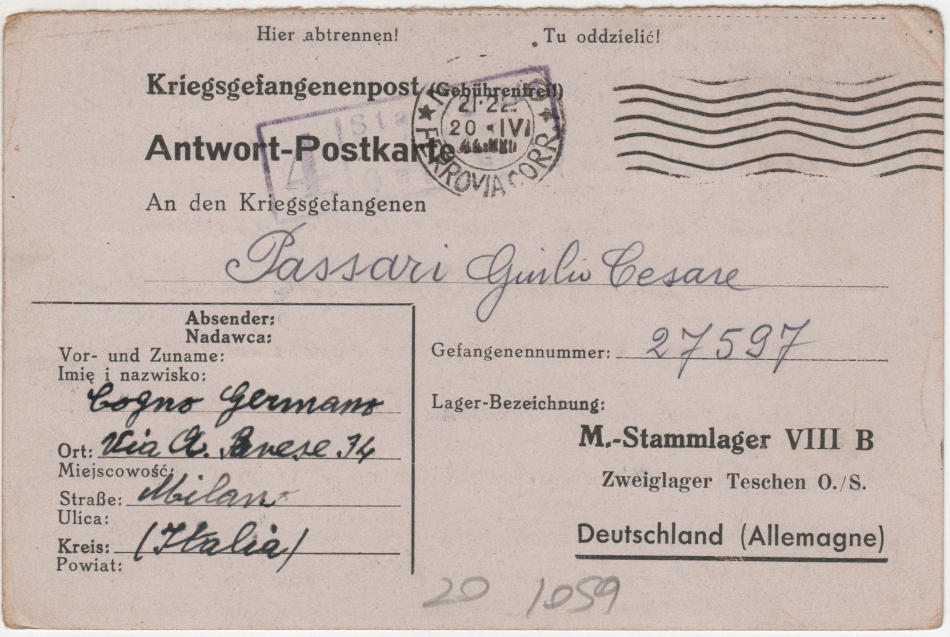 Hier abtrennen! Tu oddzielić!
Kriegsgefangenenpost (Gebührenfrei!)
21·22
20 · IV
Antwort-Postkarte
FERROVIA CORR
An den Kriegsgefangenen
Passari Giulio Cesare
Absender:
Nadawca:
Vor- und Zuname:
Imię i nazwisko:
Cogno Germano
Gefangenennummer: 27597
Lager-Bezeichnung:
Ort: Via A. 34
Miejscowość:
M.-Stammlager VIII B
Straße: Milano
Ulica:
Zweiglager Teschen O./S.
Kreis: (Italia)
Powiat:
Deutschland (Allemagne)
20 1059